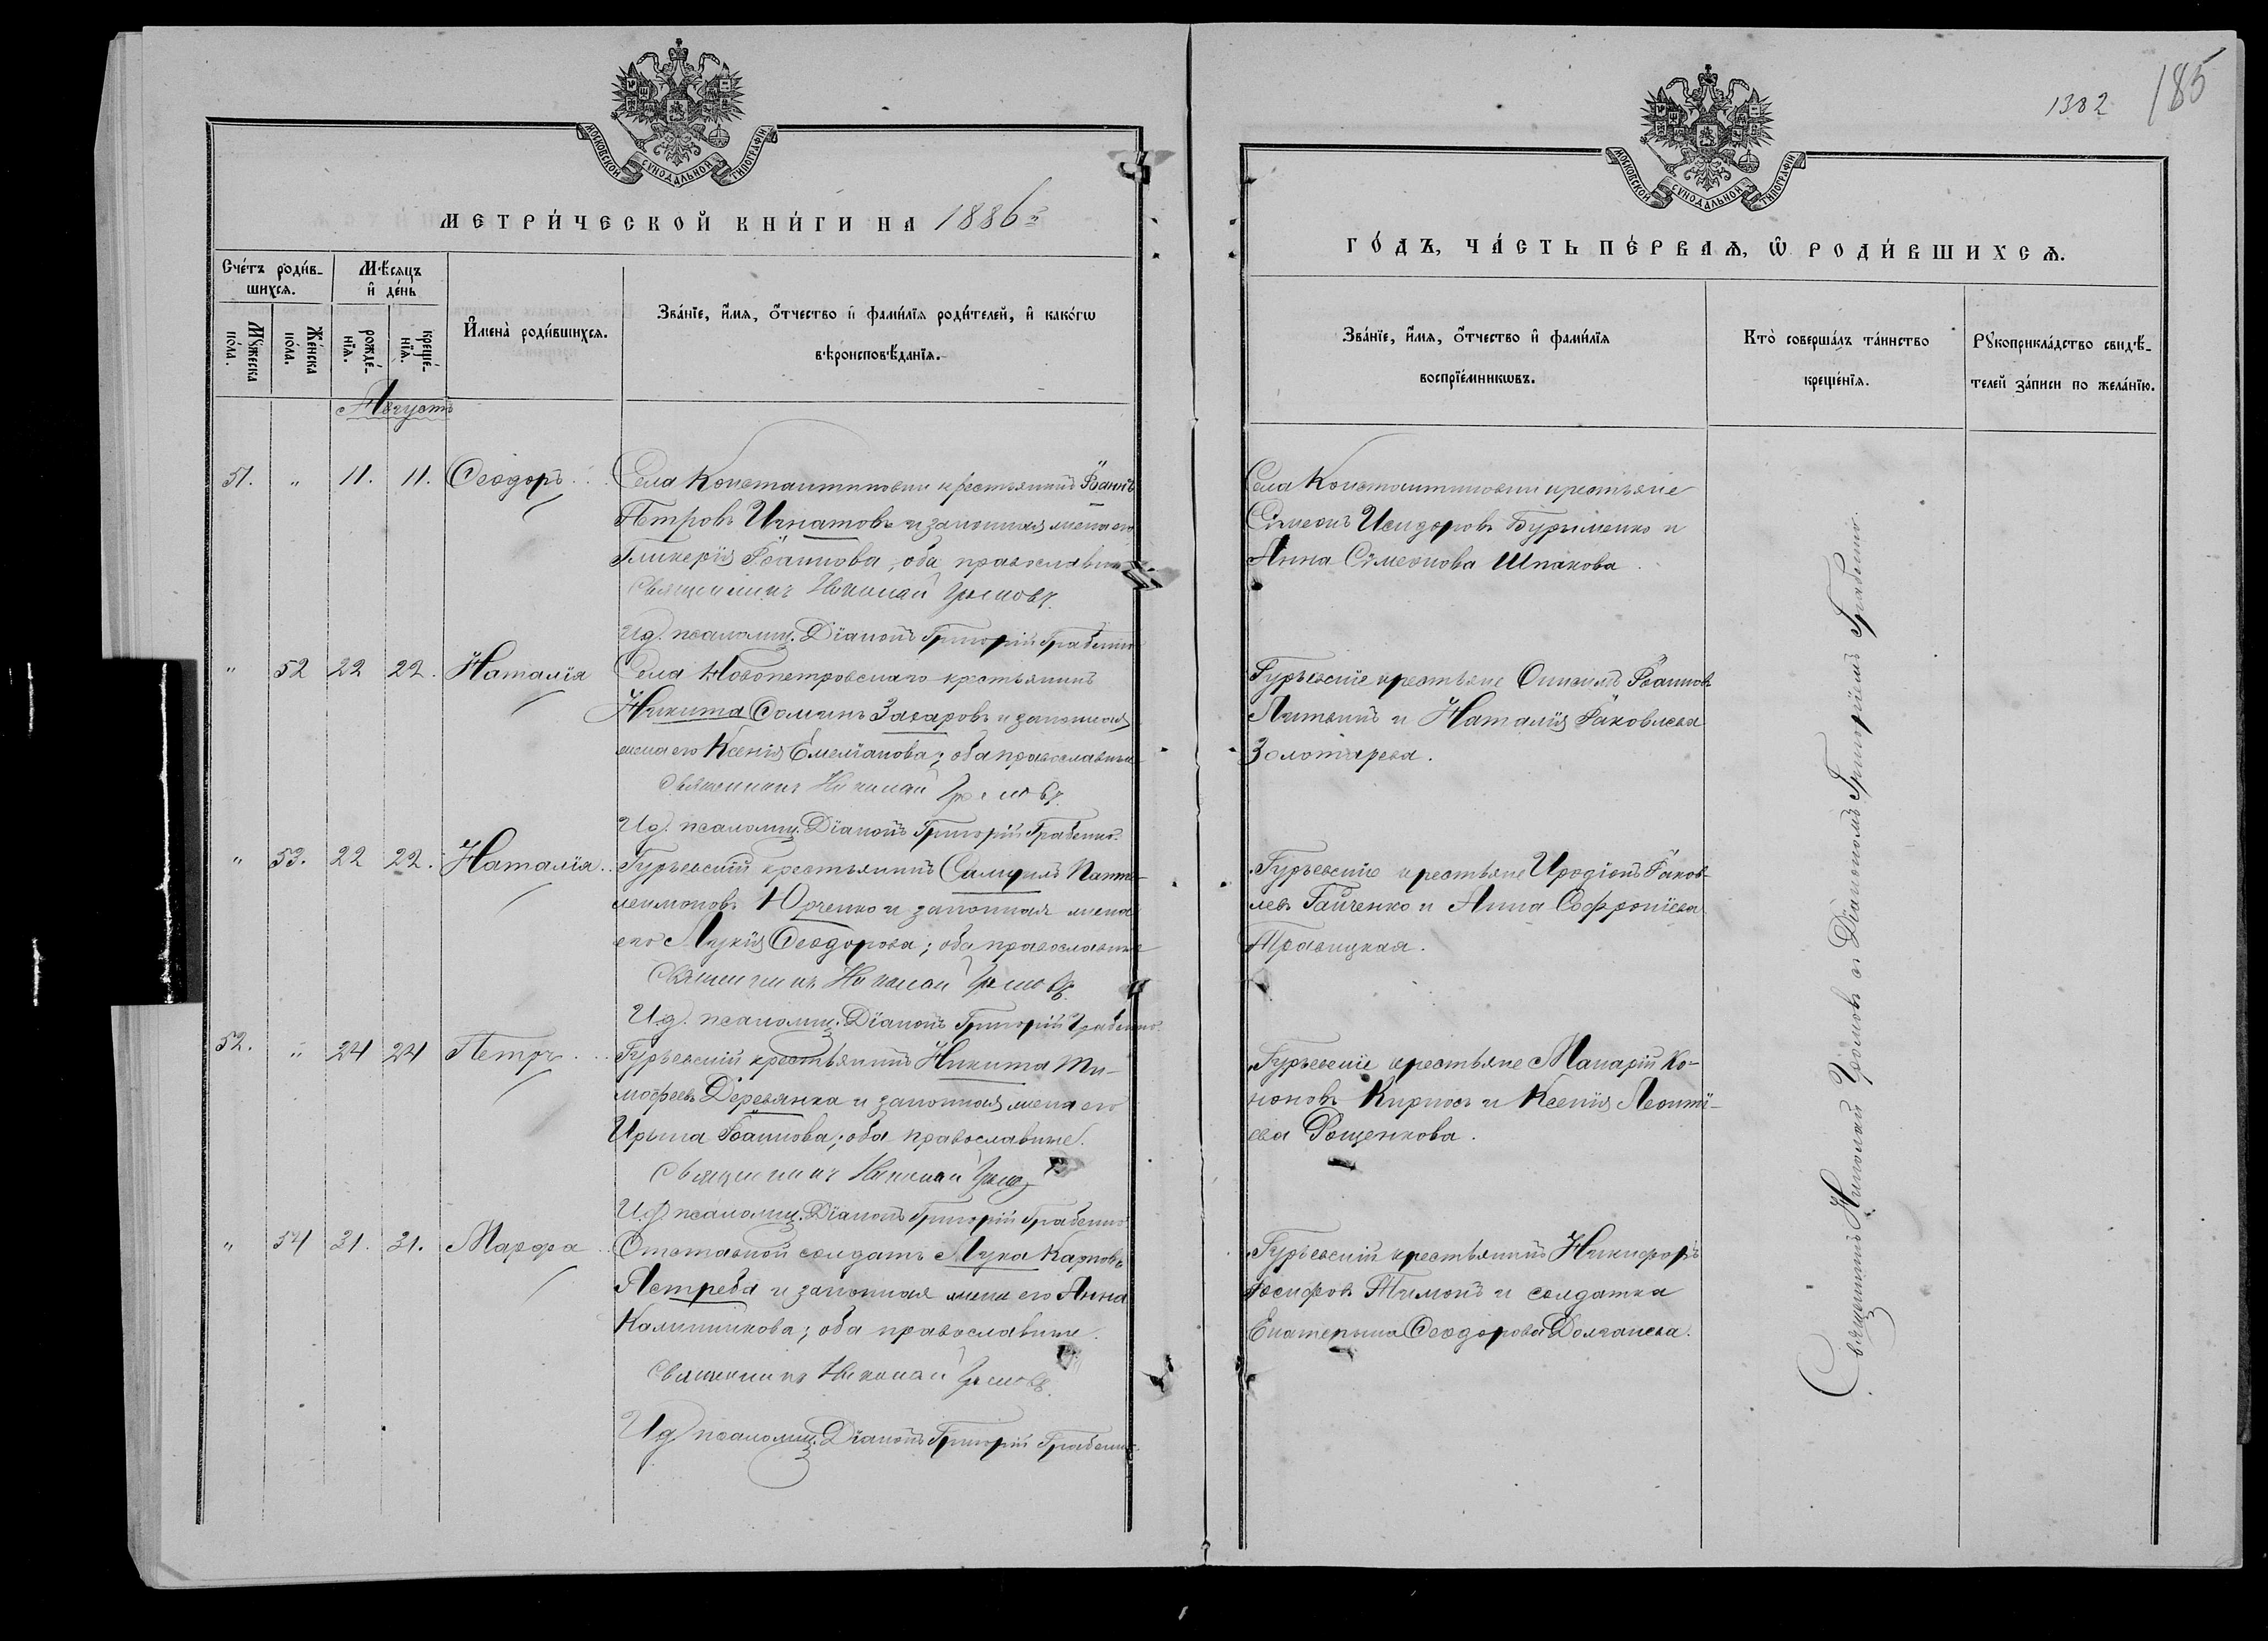 МОСКОВСКОЙ СѴНОДАЛЬНОЙ ТИПОГРАФІИ
МЕТРИ́ЧЕСКОЙ КНИ́ГИ НА 1886й
Сче́тъ роди́в-
шихсѧ.
Мѣ́сѧцъ
и҆ де́нь
И҆мена̀ роди́вшихсѧ.
Зва́нїе, и҆́мѧ, ѻ҆́тчество и҆ фами́лїѧ роди́телей, и҆ како́гѡ
вѣроисповѣ́данїѧ.
Мꙋ́жеска
по́ла.
Же́нска
по́ла.
рожде́-
нїѧ.
креще́-
нїѧ.
Августъ
51. " 11. 11. Ѳеодоръ.
Села Константиновки крестьянинъ Іоаннъ
Петровъ Игнатовъ и законная жена его
Гликерія Іоаннова, оба православные
Священникъ Николай Громовъ.
Ид. псаломщ. Діаконъ Григорій Грабенко
" 52 22 22. Наталія
Села Новопетровскаго крестьянинъ
Никита Ѳоминъ Захаровъ и законная
жена его Ксенія Емеліанова; оба православные
Священникъ Николай Громовъ.
Ид. псаломщ. Діаконъ Григорій Грабенко.
" 53. 22 22. Наталія.
Гурьевскій крестьянинъ Самуилъ Панте-
леимоновъ Юрченко и законная жена
его Лукія Ѳеодорова; оба православные
Священникъ Николай Громовъ.
Ид. псаломщ. Діаконъ Григорій Грабенко.
52. " 24 24 Петръ.
Гурьевскій крестьянинъ Никита Ти-
моѳеевъ Деревянка и законная жена его
Ирина Іоаннова; оба православные.
Священникъ Николай Громовъ
Ид. псаломщ. Діаконъ Григорій Грабенко
" 54 31. 31. Марѳа
Отставной солдатъ Лука Карповъ
Ястреба и законная жена его Анна
Калинникова; оба православные.
Священникъ Николай Громовъ.
Ид псаломщ. Діаконъ Григорій Грабенко.
1382 185
МОСКОВСКОЙ СѴНОДАЛЬНОЙ ТИПОГРАФІИ
ГО́ДЪ, ЧА́СТЬ ПЕ́РВАѦ, Ѡ҆ РОДИ́ВШИХСѦ.
Зва́нїе, и҆́мѧ, ѻ҆́тчество и҆ фами́лїѧ
воспрїе́мникѡвъ.
Кто̀ соверша́лъ та́инство
креще́нїѧ.
Рꙋкоприкла́дство свидѣ́-
телей за́писи по жела́нїю.
Села Константиновки крестьяне
Сѵмеонъ Исидоровъ Бурименко и
Анна Сѵмеонова Шпакова.
Гурьевскіе крестьяне Онисимъ Іоанновъ
Литвинъ и Наталія Іаковлева
Золотарева.
Гурьевскіе крестьяне Иродіонъ Іаков-
левъ Гайченко и Анна Софроніева
Правицкая.
Гурьевскіе крестьяне Макарій Ко-
ноновъ Кирносъ и Ксенія Леонті-
ева Рощенкова.
Гурьевскій крестьянинъ Никифоръ
Іосифовъ Тимонъ и солдатка
Екатерина Ѳеодорова Долганева.
Священникъ Николай Громовъ съ Діакономъ Григоріемъ Грабенко.